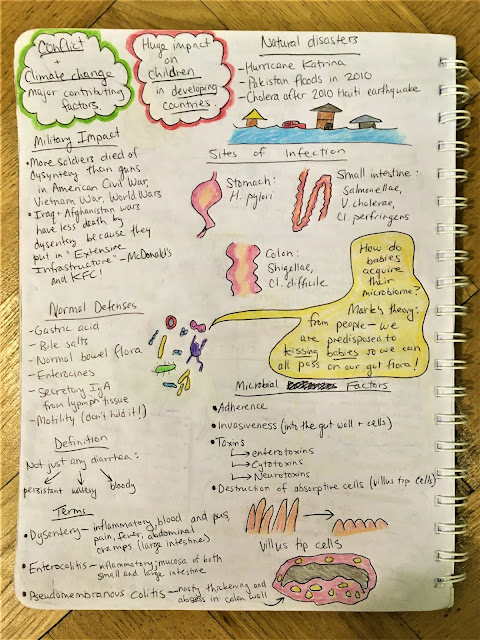 Conflict
+
Climate change
major contributing
factors.
Huge impact
on
children
in developing
countries.
Natural disasters
- Hurricane Katrina
- Pakistan floods in 2010
- Cholera after 2010 Haiti earthquake
Military Impact
• More soldiers died of
dysyntery than guns
in American Civil War,
Vietnam War, World Wars
• Iraq + Afghanistan wars
have less death by
dysentery because they
put in "Extensive
Infrastructure" - McDonald's
and KFC!
Sites of Infection
Stomach:
H. pylori
Small intestine:
Salmonellae,
V. cholerae,
Cl. perfringens
Colon:
Shigellae,
Cl. difficile
How do
babies
acquire
their
microbiome?
Mark's theory:
from people - we
are predisposed to
kissing babies so we can
all pass on our gut flora!
Normal Defenses
- Gastric acid
- Bile salts
- Normal bowel flora
- Enterocines
- Secretory IgA
from lymph tissue
- Motility (don't hold it!)
Microbial Factors
• Adherence
• Invasiveness (into the gut wall + cells)
• Toxins
↳ enterotoxins
↳ Cytotoxins
↳ Neurotoxins
• Destruction of absorptive cells (villus tip cells)
Villus tip cells
Definition
Not just any diarrhea:
persistent watery bloody
Terms
• Dysentery - inflammatory, blood and pus,
pain, fever, abdominal
cramps (large intestine)
• Enterocolitis - inflammatory, mucosa of both
small and large intestine
• Pseudomembranous Colitis - nasty thickening and
abscess in colon wall